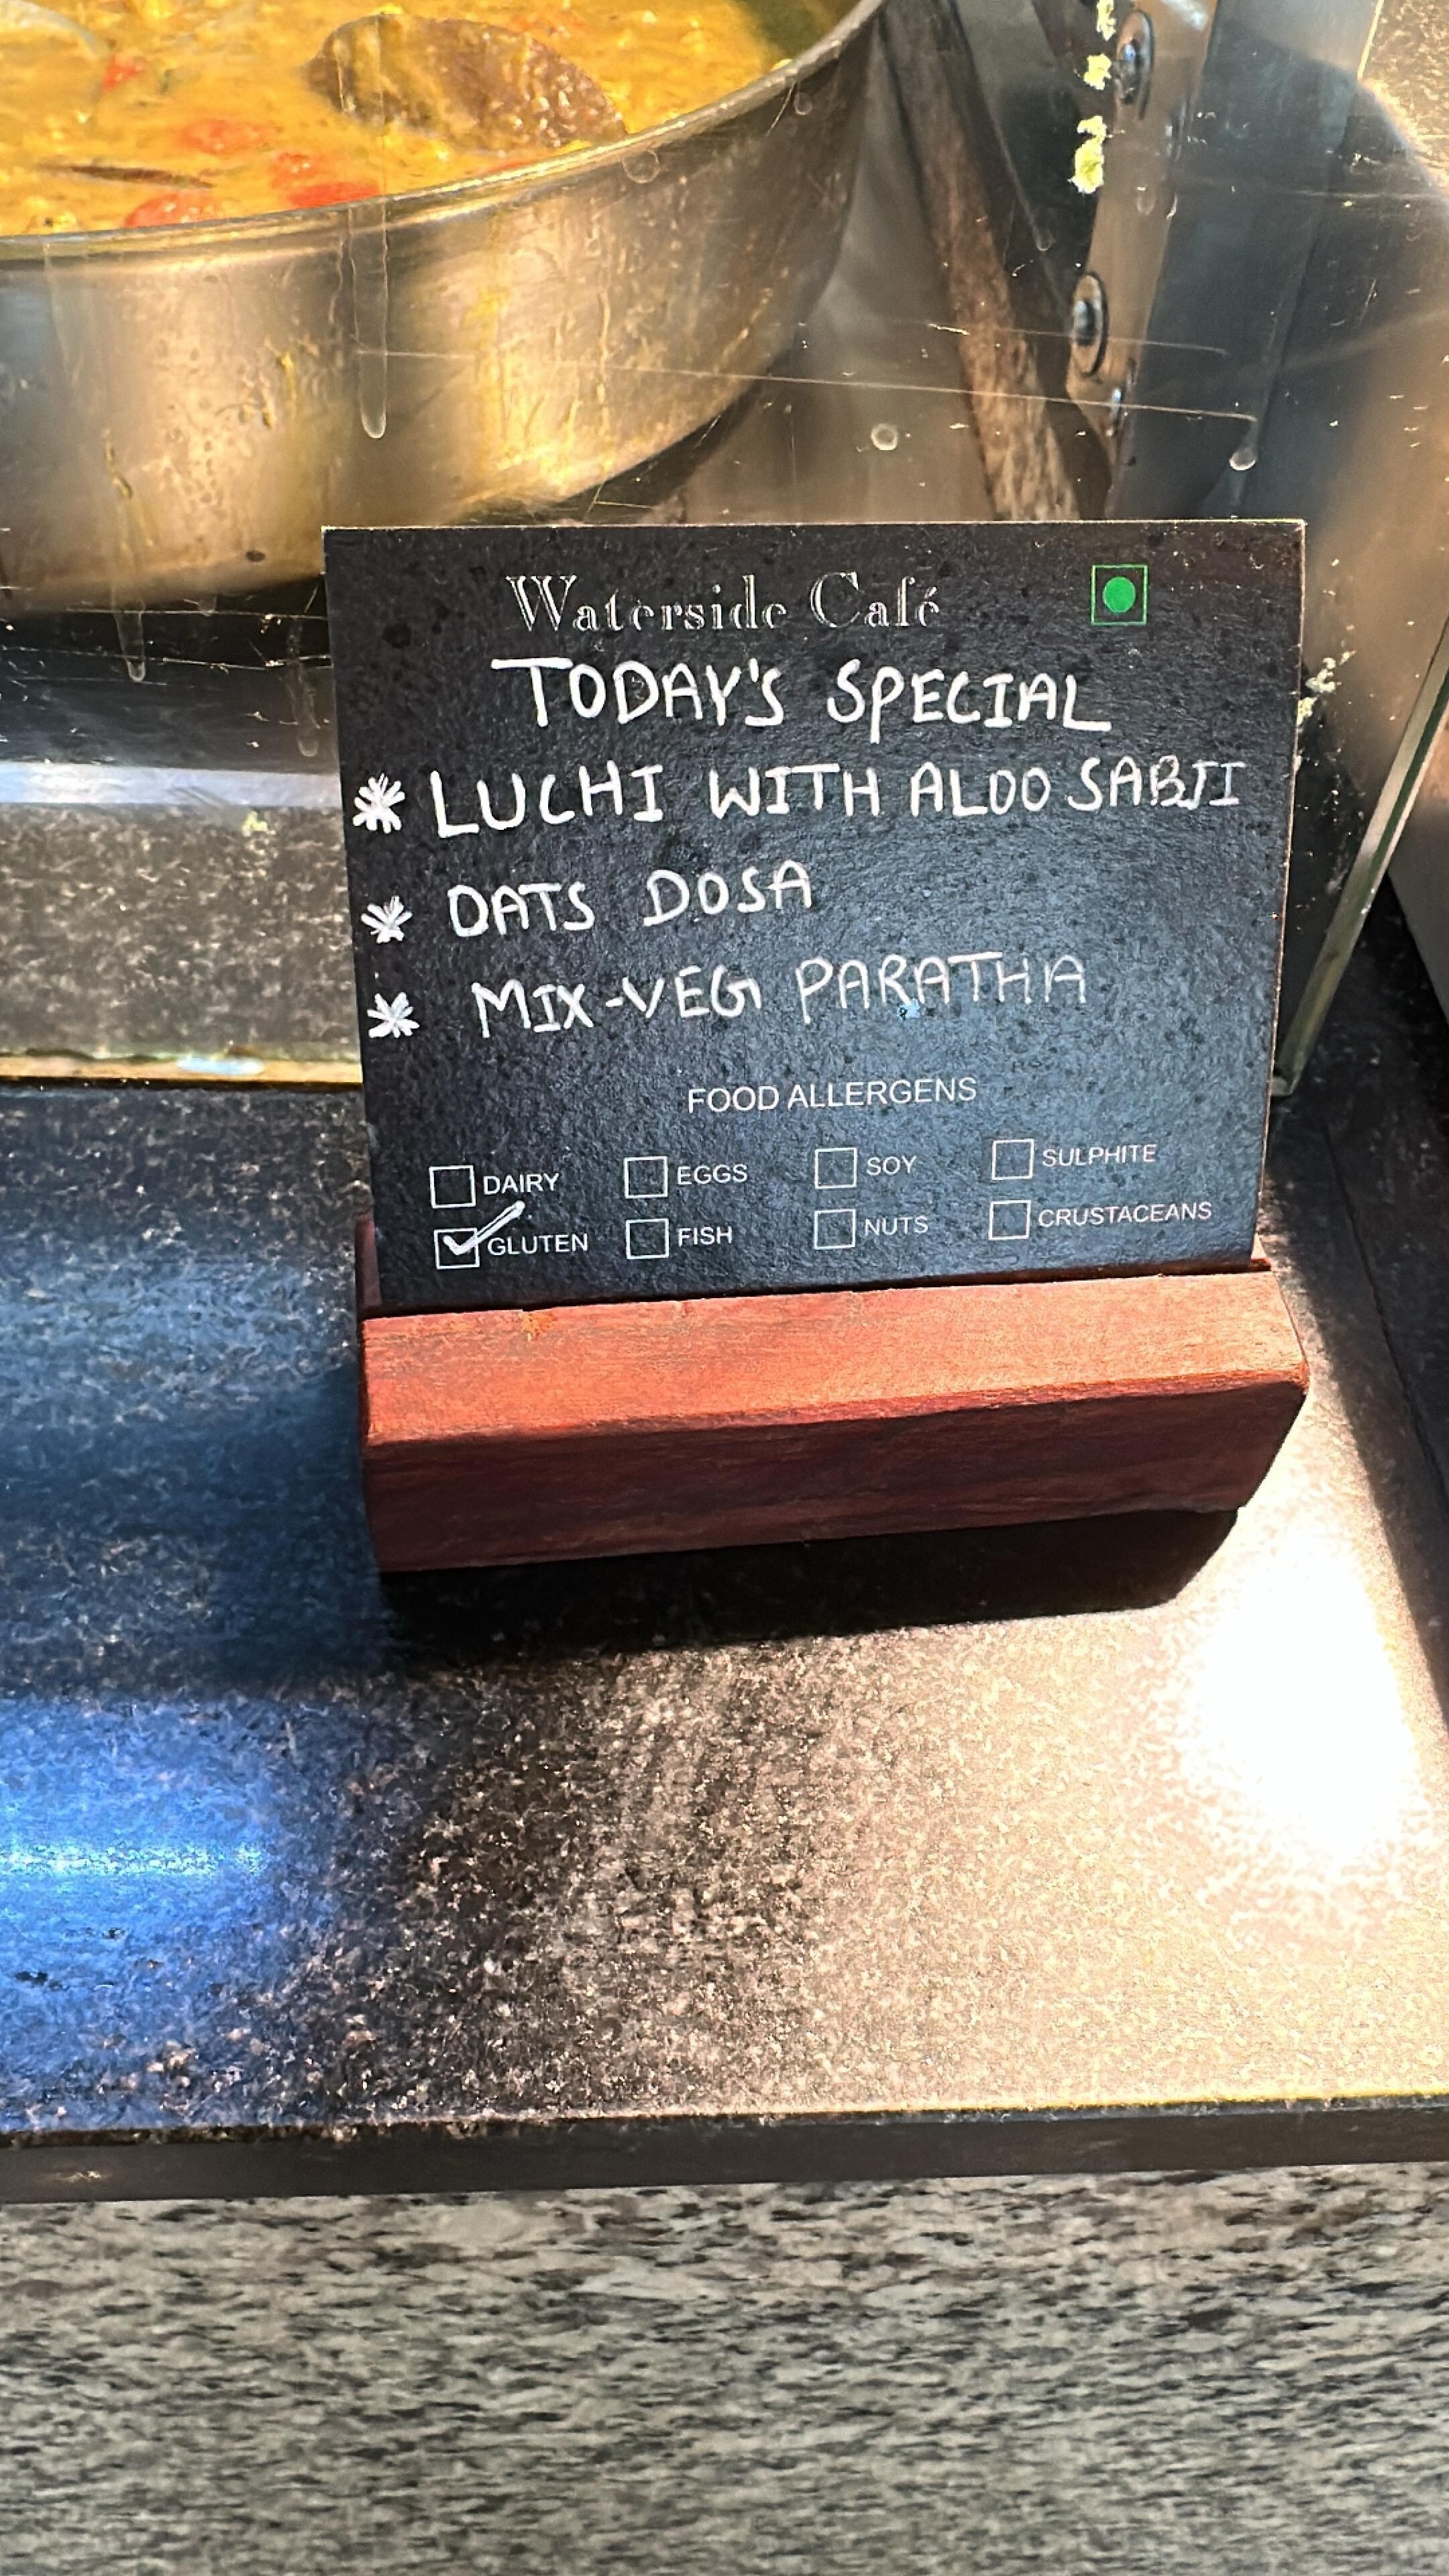 Waterside Café
TODAY'S SPECIAL
* LUCHI WITH ALOO SABJI
* OATS DOSA
* MIX-VEG PARATHA
FOOD ALLERGENS
DAIRY EGGS SOY SULPHITE
GLUTEN FISH NUTS CRUSTACEANS